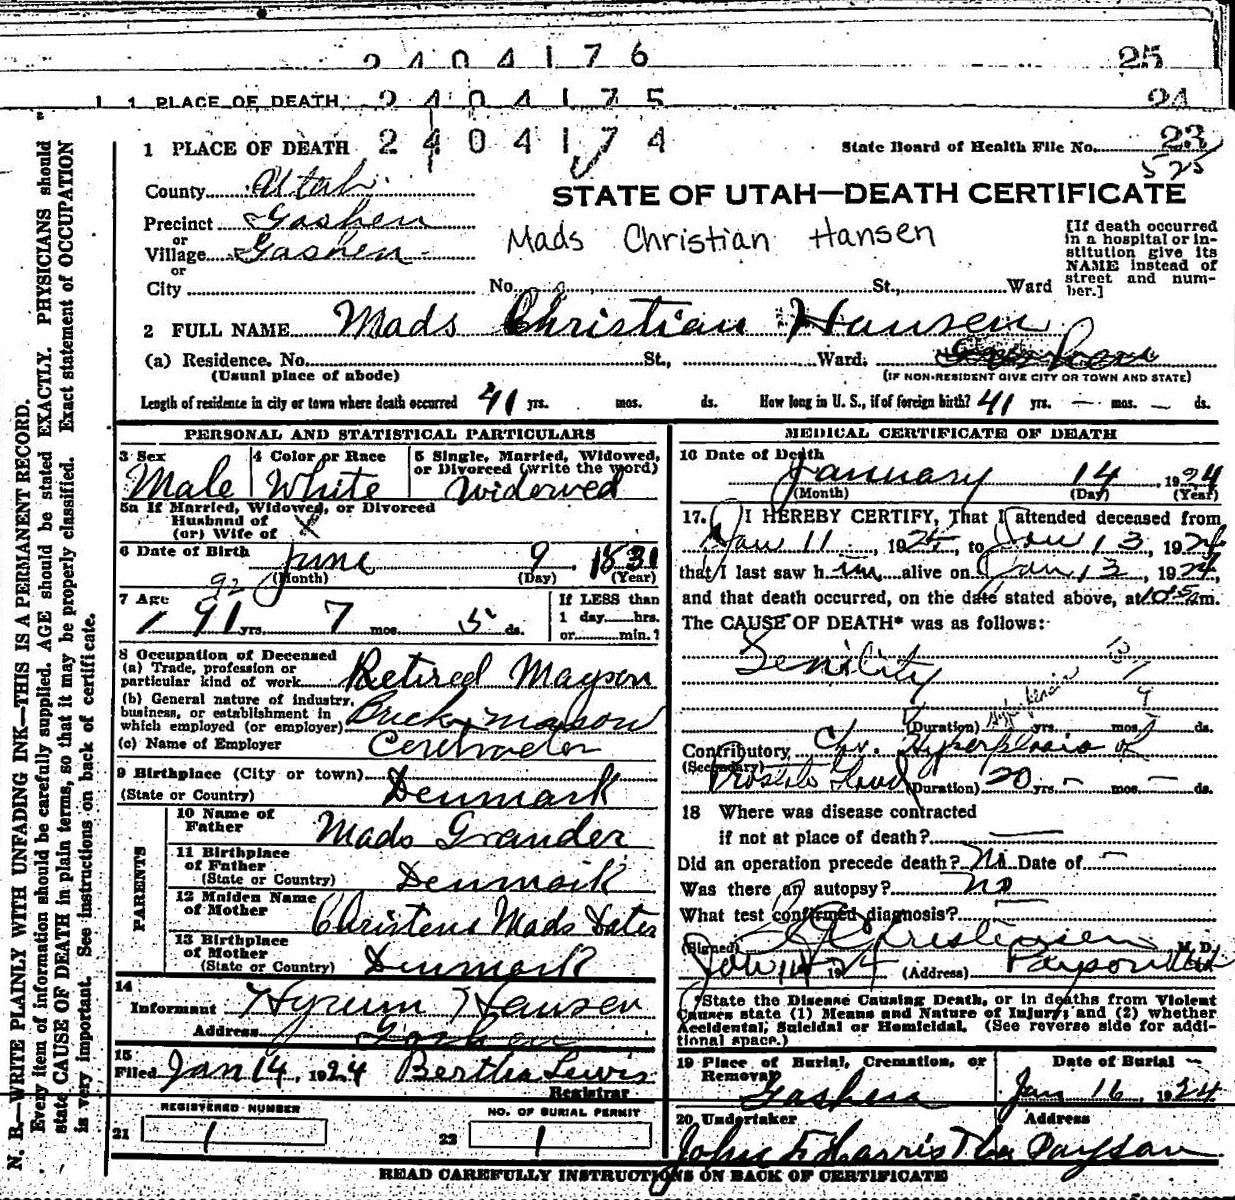 2 4 0 4 1 7 6 25
1 1 PLACE OF DEATH 2 4 0 4 1 7 5 24
1 PLACE OF DEATH 2 4 0 4 1 7 4 State Board of Health File No. 23
525
County Utah
STATE OF UTAH—DEATH CERTIFICATE
Precinct Goshen
or
Village Goshen
or
Mads Christian Hansen
[If death occurred
in a hospital or in-
stitution give its
NAME instead of
street and num-
ber.]
City No. St., Ward
2 FULL NAME Mads Christian Hansen
(a) Residence. No. St., Ward.
(Usual place of abode) (IF NON-RESIDENT GIVE CITY OR TOWN AND STATE)
Length of residence in city or town where death occurred 41 yrs. mos. ds. How long in U. S., if of foreign birth? 41 yrs. — mos. — ds.
PERSONAL AND STATISTICAL PARTICULARS
3 Sex
Male
4 Color or Race
White
5 Single, Married, Widowed,
or Divorced (write the word)
Widowed
5a If Married, Widowed, or Divorced
Husband of
(or) Wife of
6 Date of Birth June 9, 1831
(Month) (Day) (Year)
92
7 Age 91 yrs. 7 mos. 5 ds.
If LESS than
1 day hrs.
or min.?
8 Occupation of Deceased
(a) Trade, profession or
particular kind of work Retired Mayson
(b) General nature of industry,
business, or establishment in
which employed (or employer) Brick mason
(c) Name of Employer
9 Birthplace (City or town)
(State or Country) Denmark
PARENTS
10 Name of
Father Mads Grander
11 Birthplace
of Father
(State or Country) Denmark
12 Maiden Name
of Mother Christena Mads Dater
13 Birthplace
of Mother
(State or Country) Denmark
14
Informant Hyrum Hansen
Address Goshen
15
Filed Jan 14, 1924 Bertha Lewis
Registrar
REGISTERED NUMBER
21 1
NO. OF BURIAL PERMIT
22 1
MEDICAL CERTIFICATE OF DEATH
16 Date of Death
January 14, 1924
(Month) (Day) (Year)
17. I HEREBY CERTIFY, That I attended deceased from
Jan 11, 1924, to Jan 13, 1924
that I last saw him alive on Jan 13, 1924,
and that death occurred, on the date stated above, at m.
The CAUSE OF DEATH* was as follows:
Senility
(Duration) yrs. mos. ds.
Contributory Chr. Hyperplasia of
(Secondary) Prostate Gland (Duration) 20 yrs. — mos. — ds.
18 Where was disease contracted
if not at place of death?
Did an operation precede death? No Date of —
Was there an autopsy? no
What test confirmed diagnosis?
(Signed) M. D.
Jan 14 1924 (Address) Payson Utah
*State the Disease Causing Death, or in deaths from Violent
Causes state (1) Means and Nature of Injury; and (2) whether
Accidental, Suicidal or Homicidal. (See reverse side for addi-
tional space.)
19 Place of Burial, Cremation, or
Removal Goshen
Date of Burial
Jan 16, 1924
20 Undertaker Address
John F Harris Payson
READ CAREFULLY INSTRUCTIONS ON BACK OF CERTIFICATE
N. B.—WRITE PLAINLY WITH UNFADING INK—THIS IS A PERMANENT RECORD.
Every item of information should be carefully supplied. AGE should be stated EXACTLY. PHYSICIANS should
state CAUSE OF DEATH in plain terms, so that it may be properly classified. Exact statement of OCCUPATION
is very important. See instructions on back of certificate.